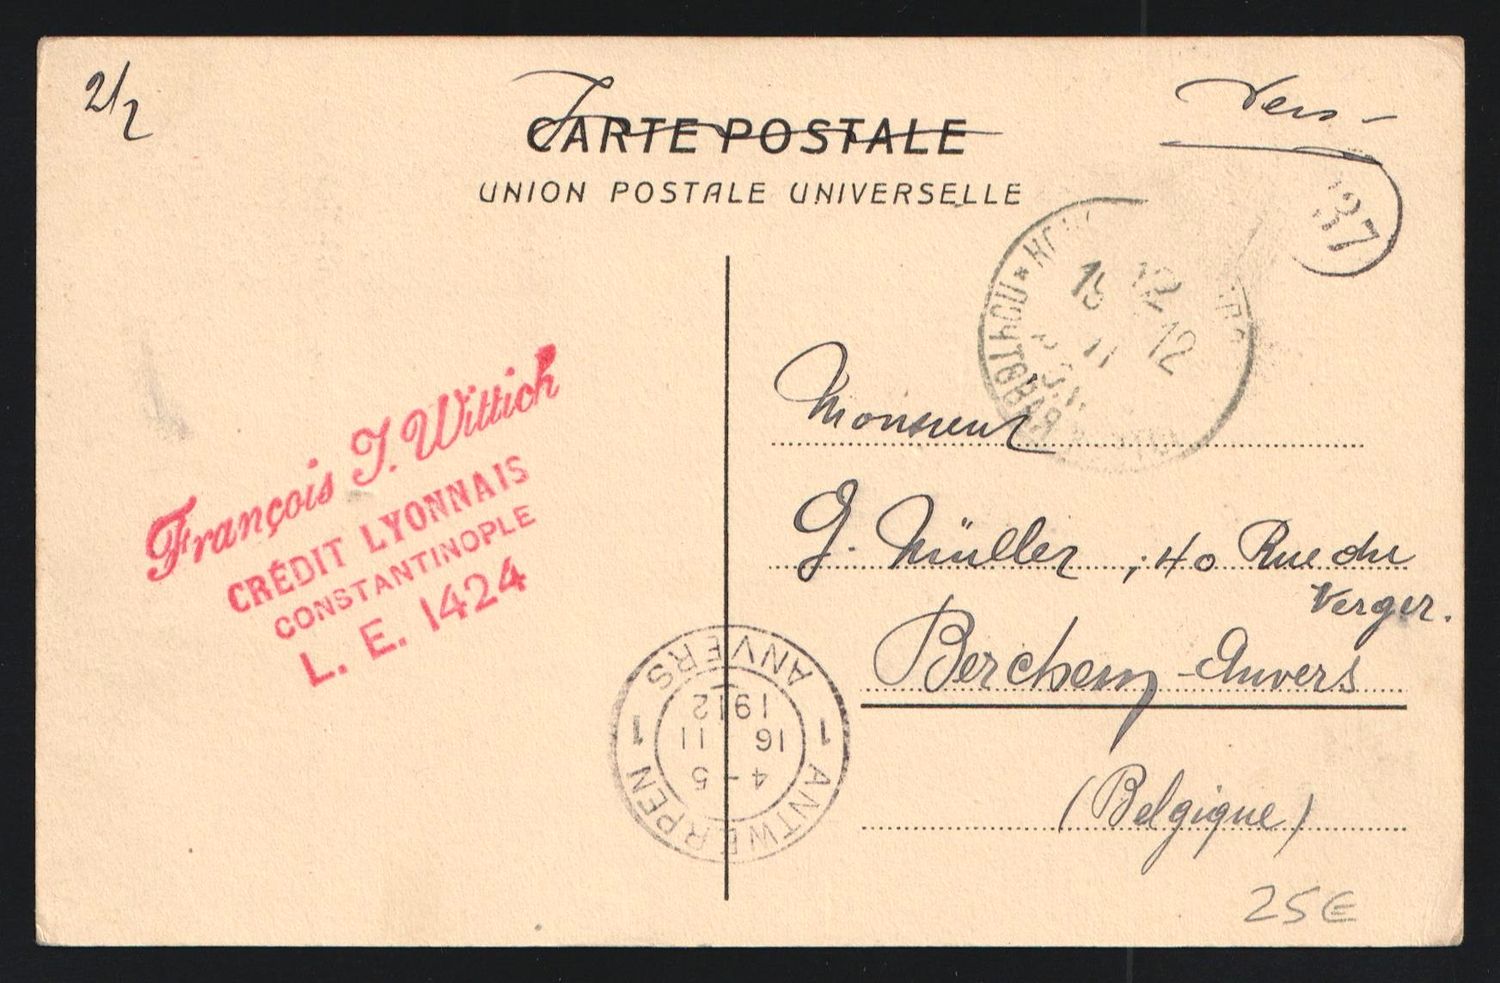 2/2
CARTE POSTALE
UNION POSTALE UNIVERSELLE
137
12
12
11
Monsieur
G. Müller, 40 Rue du
Verger.
Berchem-Anvers
(Belgique)
25€
François J. Wittich
CRÉDIT LYONNAIS
CONSTANTINOPLE
L. E. 1424
1 ANTWERPEN 1
4-5
16 11
1912
ANVERS